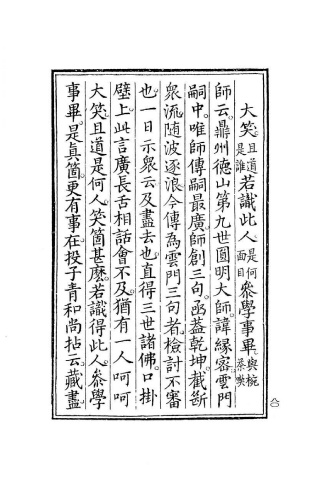 大笑。且道是誰若識此人。是何面目叅學事畢。與椀茶喫
師云。鼎州德山第九世圓明大師。諱緣密。雲門
嗣中。唯師傳嗣最廣。師創三句。凾蓋乾坤。截斷
衆流。隨波逐浪。今傳為雲門三句者。檢討不審
也。一日示衆云。及盡去也。直得三世諸佛。口掛
壁上。此言廣長舌相話會不及。猶有一人呵呵
大笑。且道是何人。笑箇甚麽。若識得此人。叅學
事畢。是眞箇。更有事在。投子青和尚拈云。藏盡